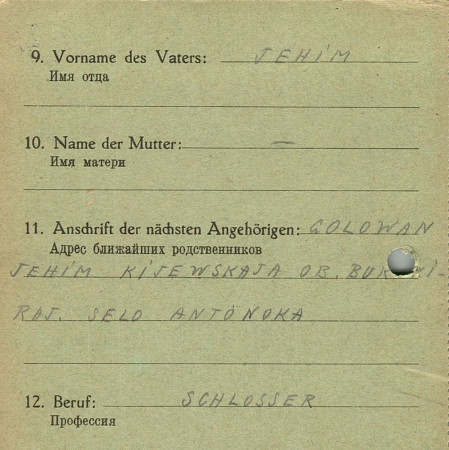 9. Vorname des Vaters: JEHIM
Имя отца
10. Name der Mutter: —
Имя матери
11. Anschrift der nächsten Angehörigen: GOLOWAN
Адрес ближайших родственников
JEHIM KIJEWSKAJA OB.
RAJ. SELO ANTÖNOKA
12. Beruf: SCHLOSSER
Профессия